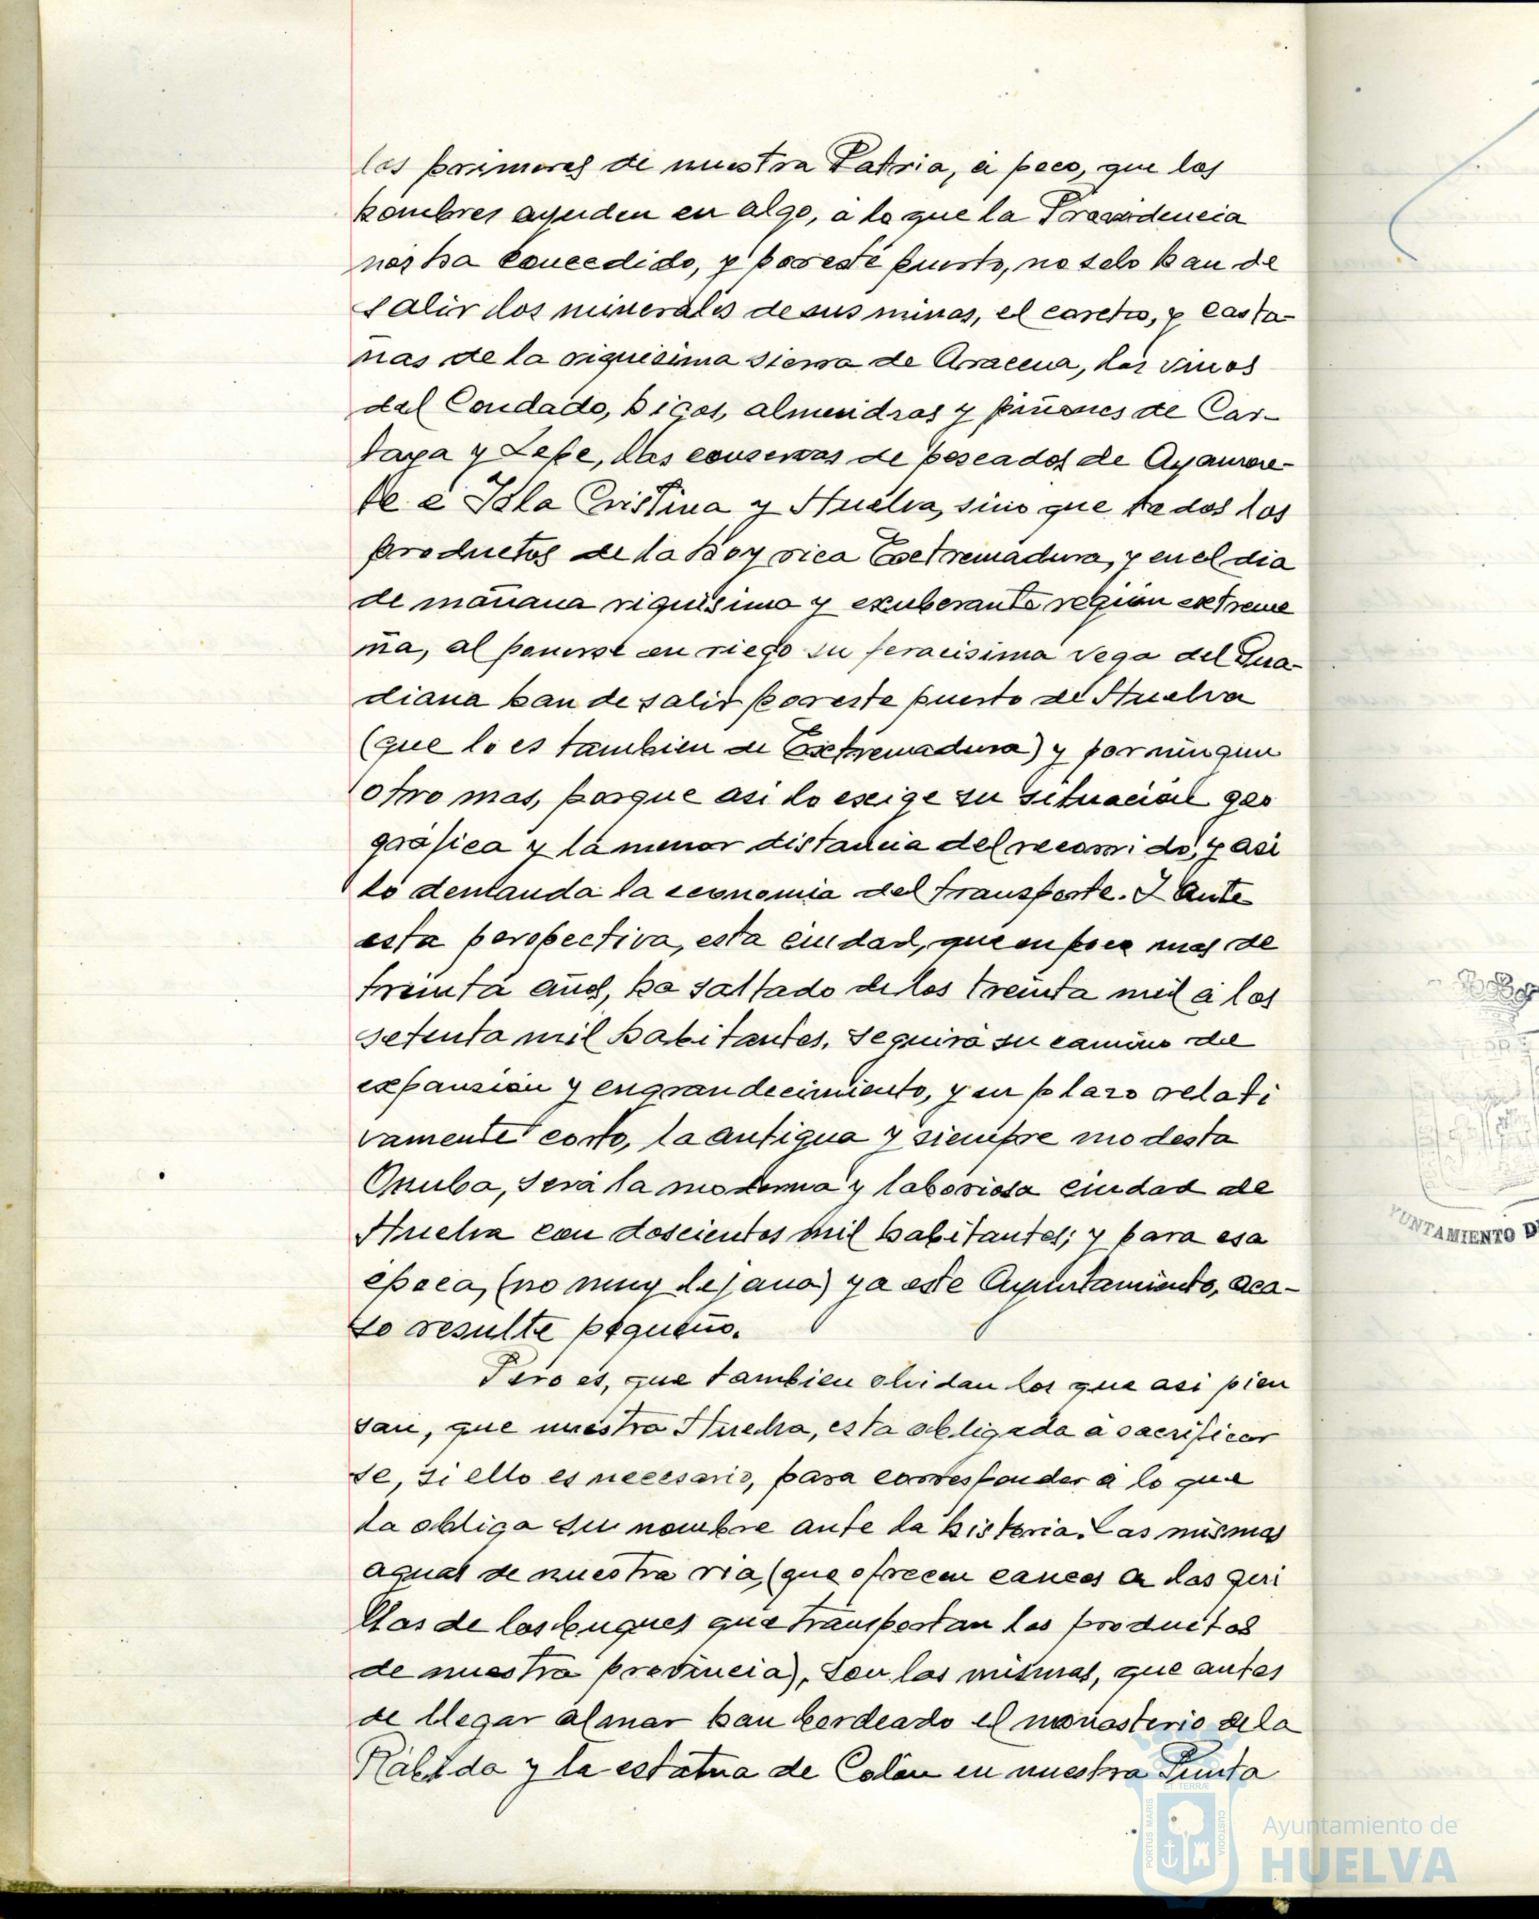 los primeros de nuestra Patria, á poco, que los
hombres ayuden en algo, á lo que la Providencia
nos ha concedido, y por este puerto, no solo han de
salir los minerales de sus minas, el corcho, y casta-
ñas de la riquisima sierra de Aracena, los vinos
del Condado, higos, almendras y piñones de Car-
taya y Lepe, las conservas de pescados de Ayamon-
te e Isla Cristina y Huelva, sino que todos los
productos de la hoy rica Extremadura, y en el dia
de mañana riquisima y exuberante región extreme
ña, al ponerse en riego su feracisima vega del Gua-
diana han de salir por este puerto de Huelva
(que lo es tambien de Extremadura) y por ningun
otro mas, porque asi lo exige su situación geo
gráfica y la menor distancia del recorrido, y asi
lo demanda la economia del transporte. Y ante
esta perspectiva, esta ciudad, que en poco mas de
treinta años, ha saltado de los treinta mil á los
setenta mil habitantes, seguirá su camino de
expansión y engrandecimiento, y en plazo relati
vamente corto, la antigua y siempre modesta
Onuba, será la moderna y laboriosa ciudad de
Huelva con doscientos mil habitantes; y para esa
época, (no muy lejana) ya este Ayuntamiento, aca-
so resulte pequeño.
Pero es, que tambien olvidan los que asi pien
san, que nuestra Huelva, esta obligada á sacrificar
se, si ello es necesario, para corresponder á lo que
la obliga su nombre ante la historia. Las mismas
aguas de nuestra ria, (que ofrecen cauces a las qui
llas de los buques que transportan los productos
de nuestra provincia), son las mismas, que antes
de llegar al mar han bordeado el monasterio de la
Rábida y la estatua de Colón en nuestra Punta
YUNTAMIENTO D
PORTUS MARIS
ET TERRÆ
CUSTODIA
Ayuntamiento de
HUELVA